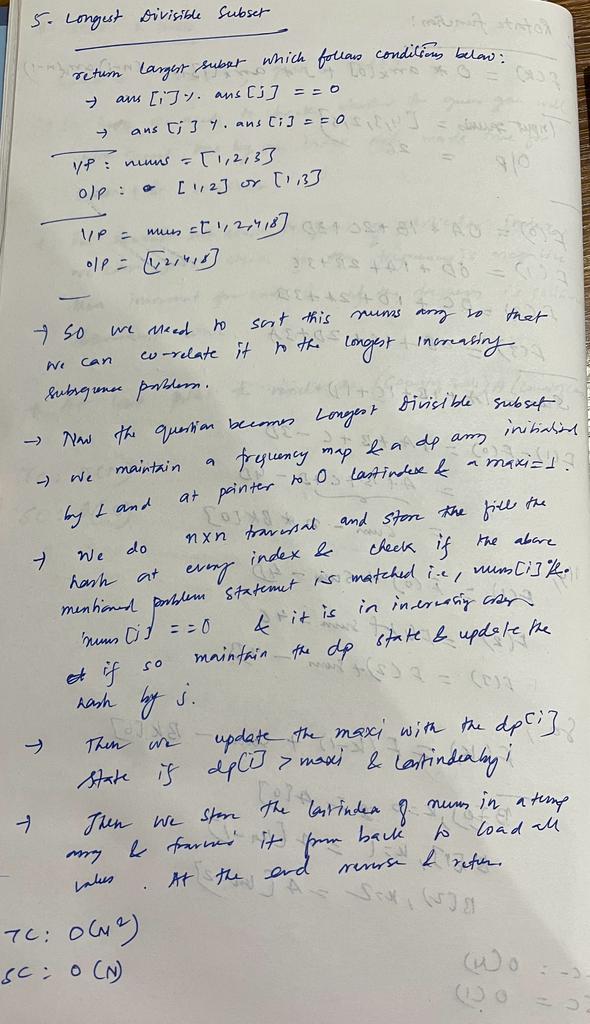 5. Longest Divisible Subset
return largest subset which follows conditions below:
→ ans[i] % ans[j] == 0
→ ans[j] % ans[i] == 0
I/P : nums = [1,2,3]
O/P : [1,2] or [1,3]
I/P = nums = [1,2,4,8]
O/P = [1,2,4,8]
→ So we need to sort this nums array so that
we can co-relate it to the longest Increasing
subsequence problem.
→ Now the question becomes Longest Divisible subset
→ we maintain a frequency map & a dp array initialized
by 1 and at pointer to 0 lastindex & a maxi=1.
→ We do nxn traversal and store the fill the
hash at every index & check if the above
mentioned problem statement is matched i.e, nums[i] %
nums[j] == 0 & it is in increasing order
if so maintain the dp state & update the
hash by j.
→ Then we update the maxi with the dp[i]
state if dp[i] > maxi & lastindex by i
→ Then we store the lastindex of nums in a temp
array & traverse it from back to load all
values. At the end reverse & return.
TC: O(N²)
SC: O(N)